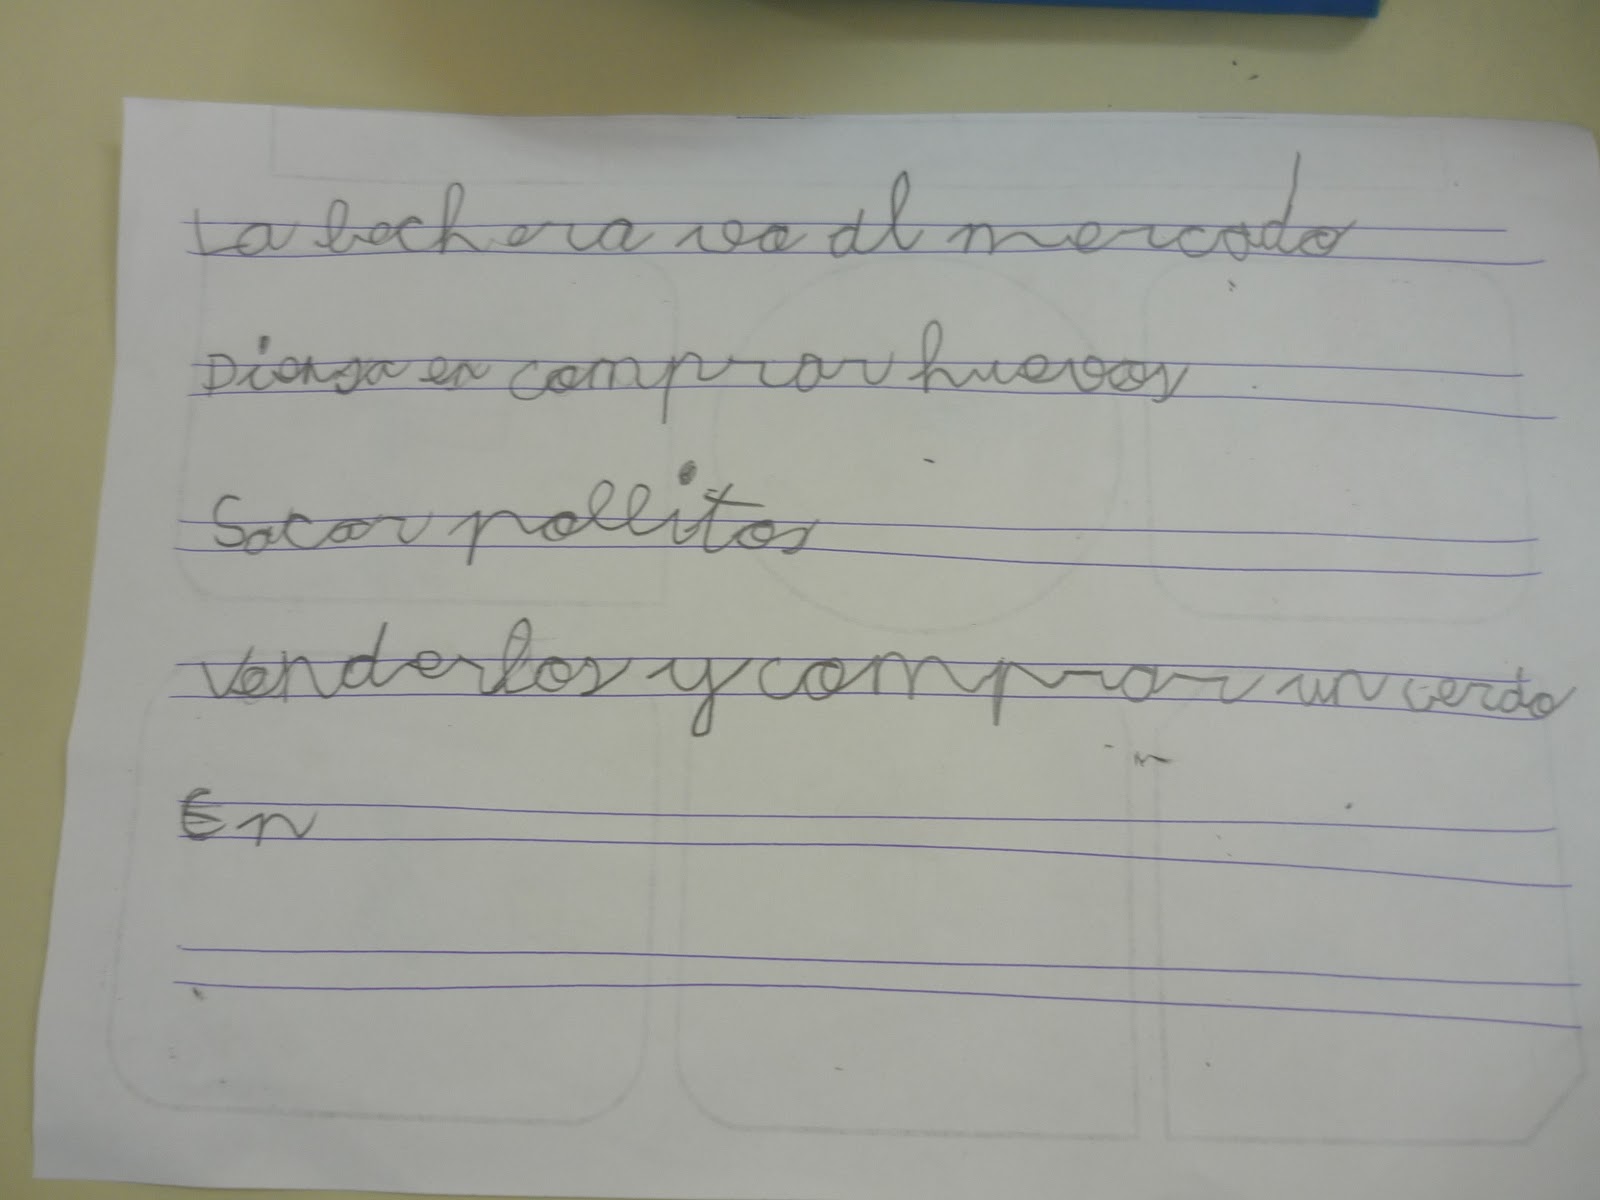 La lechera va al mercado
Piensa en comprar huevos
Sacar pollitos
venderlos y comprar un cerdo
En